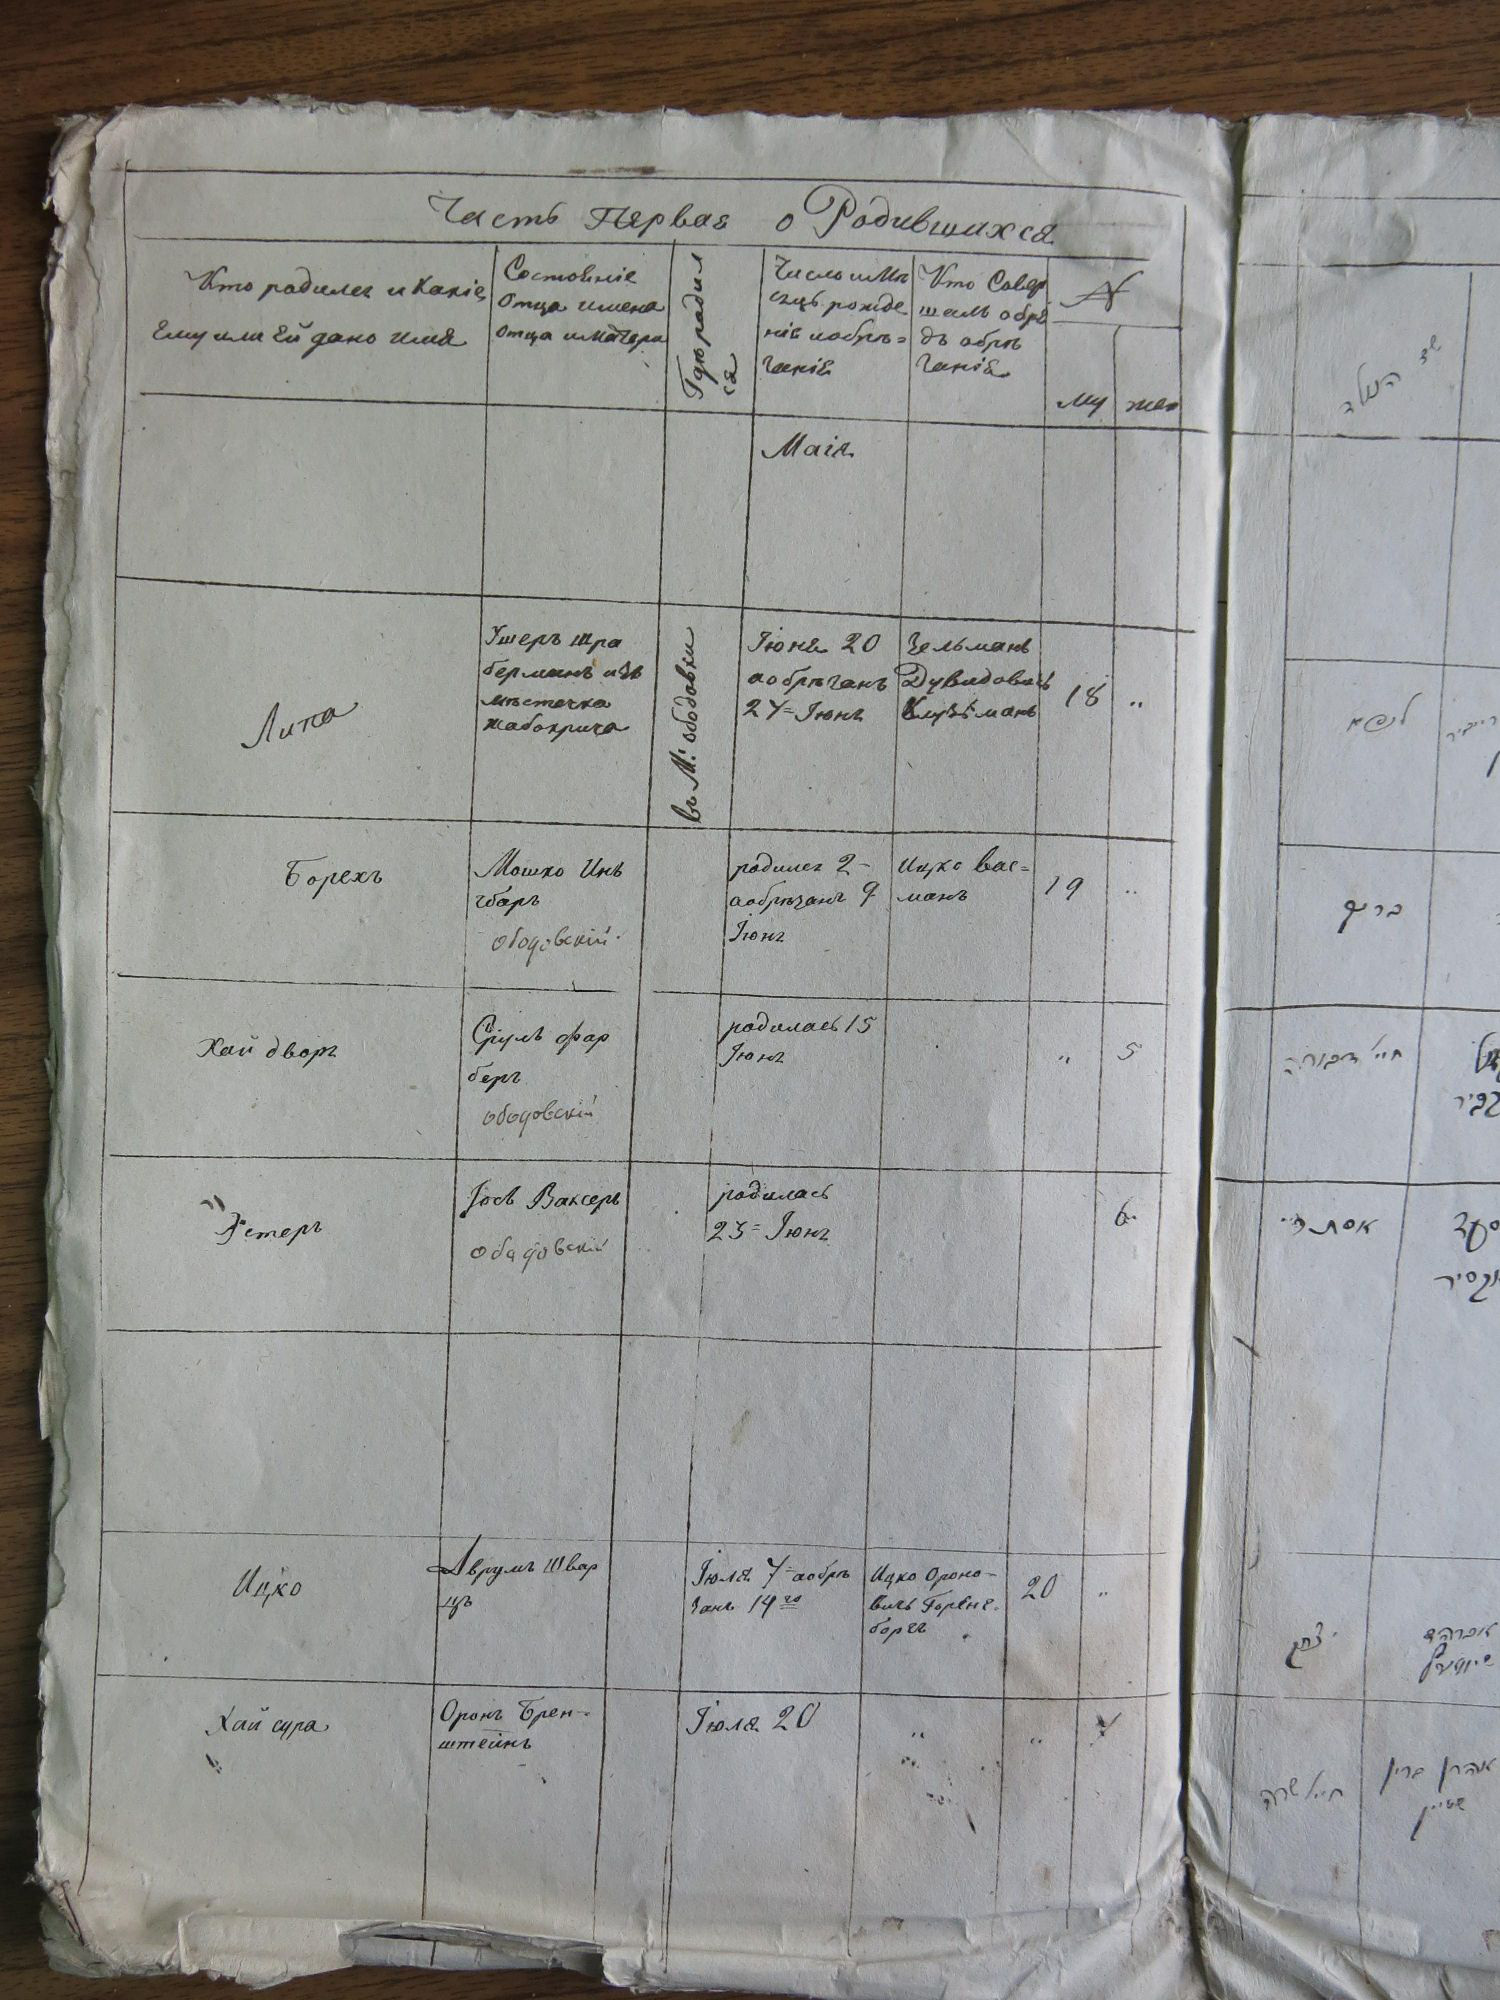 Часть Первая о Родившихся
Кто родился и какие
ему или ей дано имя
Состояніе
отца имена
отца и матера
Гдѣ родил
ся
Число и мѣ
сяць рожде
ніе и обрѣ=
заніе
Кто Совер
шалъ обре
дъ обрѣ
заніе
№
му
жен
Маія
Липа
Ушеръ Шра
берманъ изъ
мѣстечка
Жабокрича
въ М: ободовки
Іюня 20
а обрѣзанъ
27= Іюнь
Зельманъ
Дувидовичь
Клузманъ
18
"
Борехъ
Мошко Инъ
ободовскій
родился 2-
а обрѣзанъ 9
Іюнь
Ицко Вас=
манъ
19
"
Хай дворъ
Сруль Фар
беръ
ободовскій
родилась 15
Іюнь
"
5
Эстеръ
Іосъ Ваксеръ
ободовскій
родилась
23= Іюнь
6"
Ицко
Аврумъ Швар
цъ
Іюля 7= а обрѣ
занъ 14го
Ицко Ороно-
вичь
20
"
Хай сура
Оронъ Брен-
штейнъ
Іюля 20
"
"
7
לופא
ברוך
חיי' דבורה
אסתר
יצחק
אברהם
חיי' שרה
אהרן ברין
שטיין